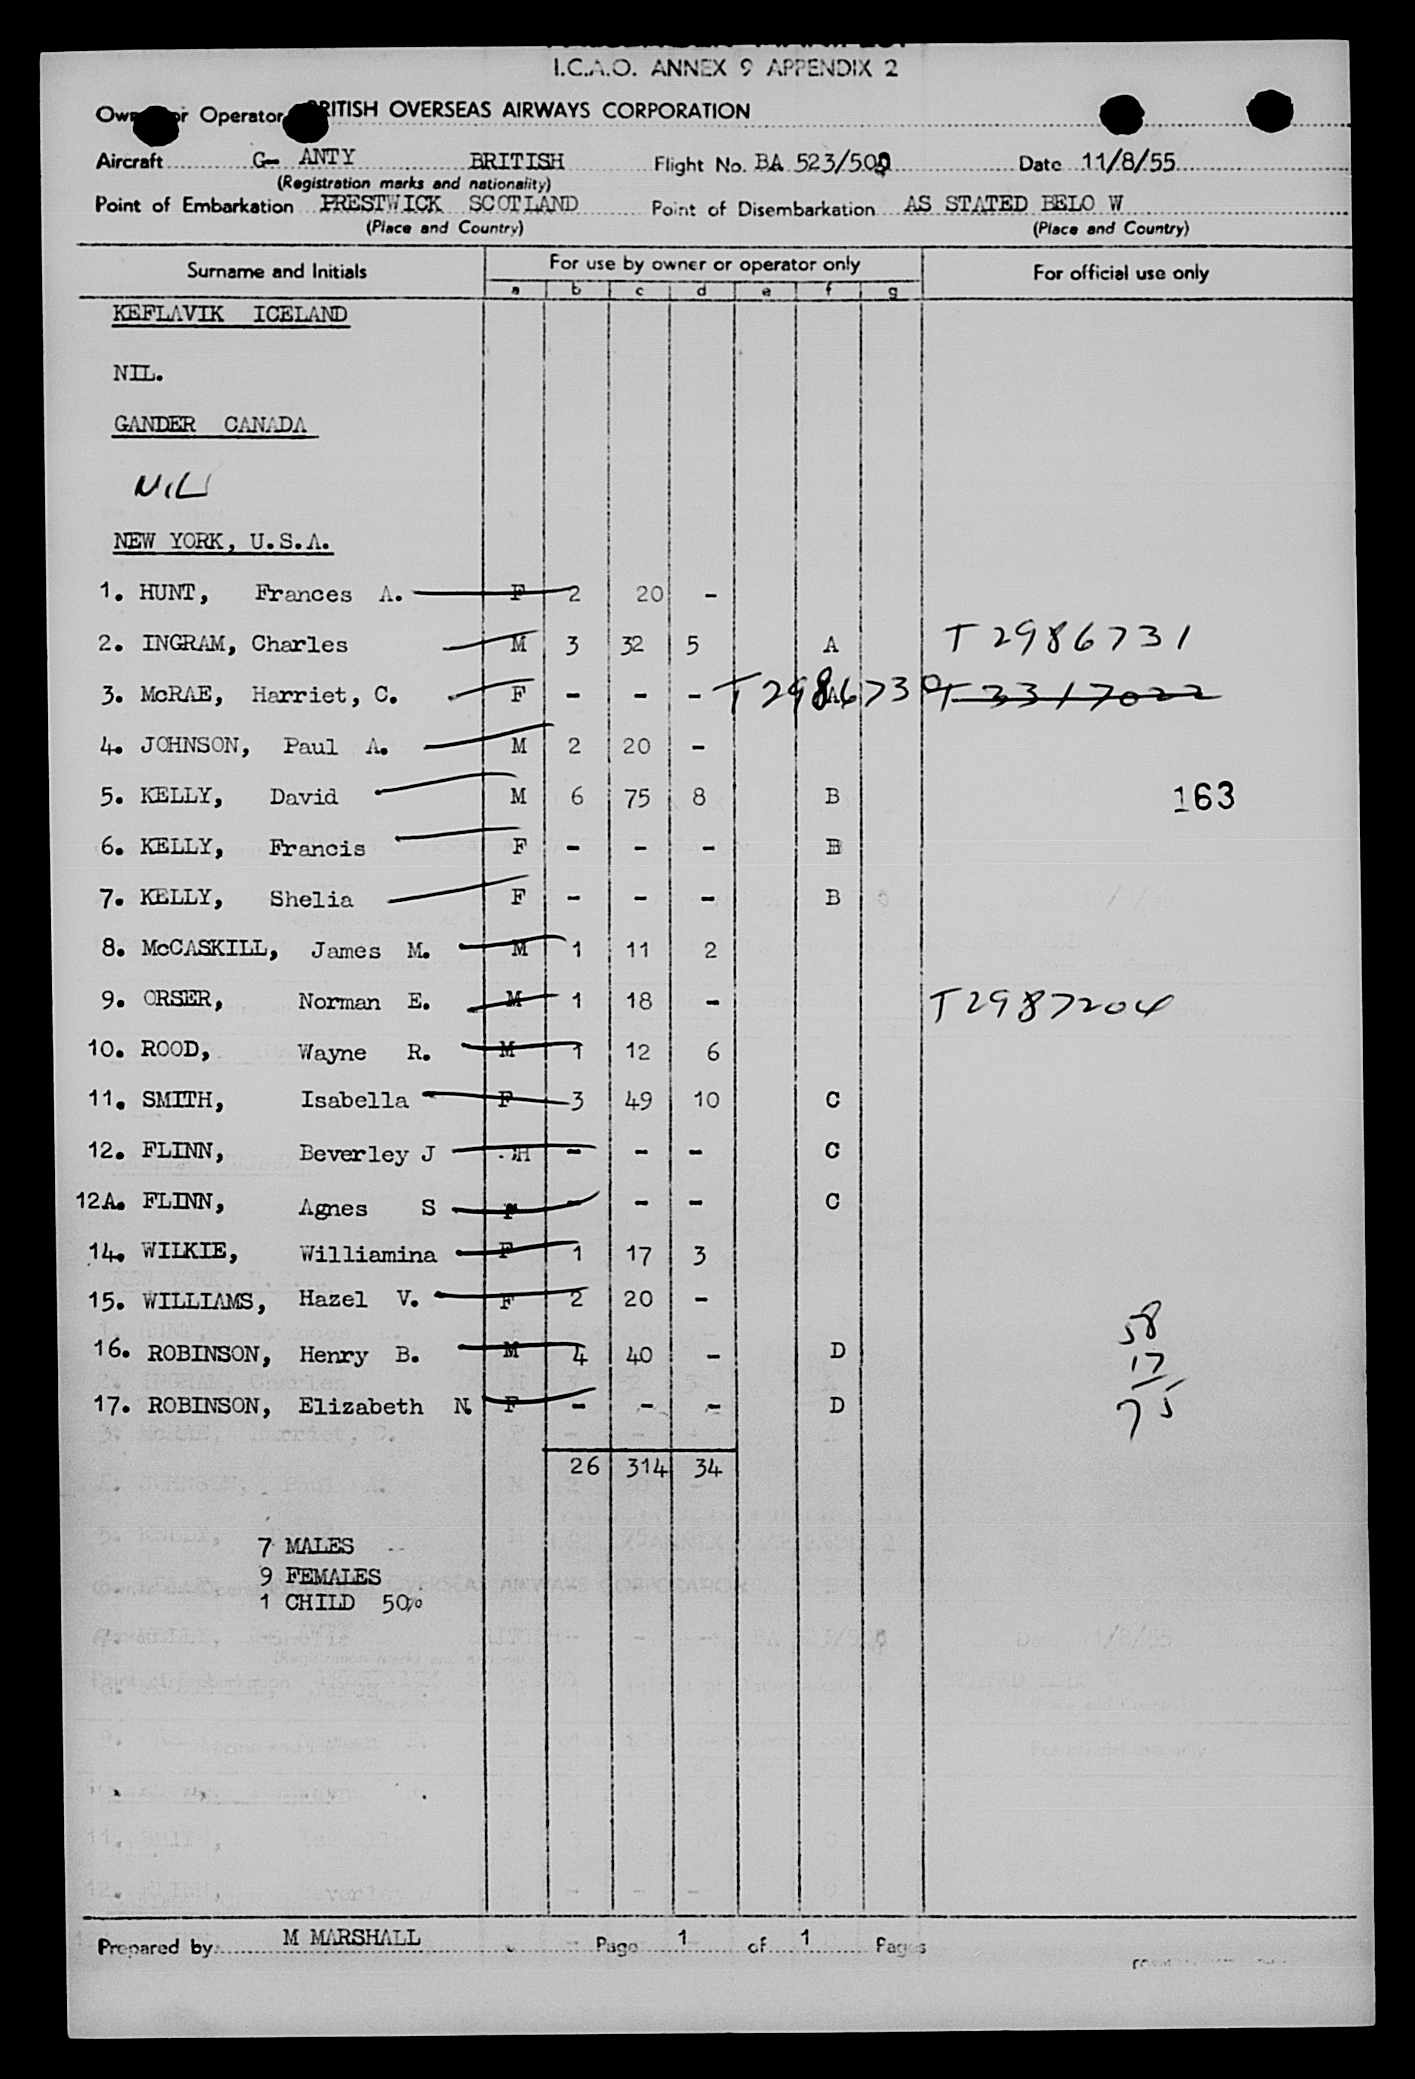 I.C.A.O. ANNEX 9 APPENDIX 2
Operator BRITISH OVERSEAS AIRWAYS CORPORATION
Aircraft G- ANTY BRITISH Flight No. BA 523/509 Date 11/8/55
(Registration marks and nationality)
Point of Embarkation PRESTWICK SCOTLAND Point of Disembarkation AS STATED BELO W
(Place and Country) (Place and Country)
Surname and Initials For use by owner or operator only For official use only
a b c d e f g
KEFLAVIK ICELAND
NIL.
GANDER CANADA
NIL
NEW YORK, U.S.A.
1. HUNT, Frances A. F 2 20 -
2. INGRAM, Charles M 3 32 5 A T2986731
3. McRAE, Harriet, C. F - - - A T2986730 T3317022
4. JOHNSON, Paul A. M 2 20 -
5. KELLY, David M 6 75 8 B 163
6. KELLY, Francis F - - - B
7. KELLY, Shelia F - - - B
8. McCASKILL, James M. M 1 11 2
9. ORSER, Norman E. M 1 18 - T2987204
10. ROOD, Wayne R. M 1 12 6
11. SMITH, Isabella F 3 49 10 C
12. FLINN, Beverley J - - - C
12A. FLINN, Agnes S F - - - C
14. WILKIE, Williamina F 1 17 3
15. WILLIAMS, Hazel V. F 2 20 -
16. ROBINSON, Henry B. M 4 40 - D
17. ROBINSON, Elizabeth N. F - - - D
58
17
75
26 314 34
7 MALES
9 FEMALES
1 CHILD 50%
Prepared by M MARSHALL Page 1 of 1 Pages